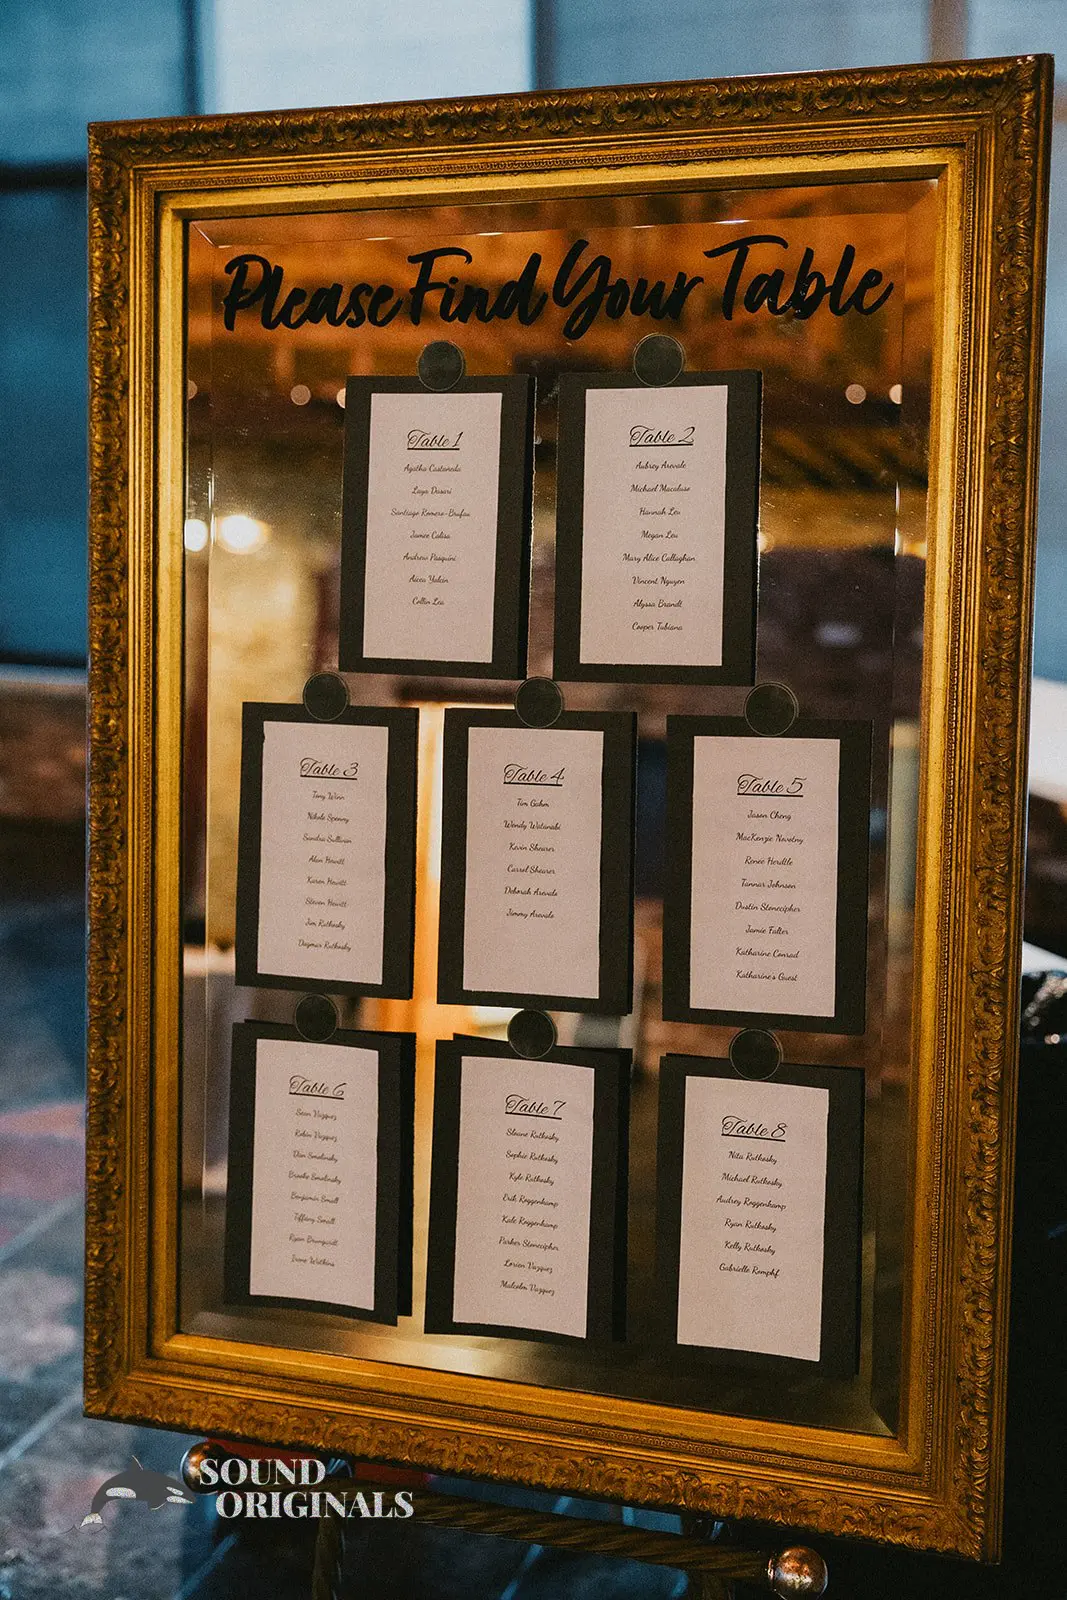 Please Find Your Table
Table 1
Agatha Castaneda
Laya Dasari
Santiago Romero-Brufau
Jamee Calisa
Andrew Pasquini
Aicea Yakin
Collin Leu
Table 2
Aubrey Arevalo
Michael Macaluso
Hannah Leu
Megan Leu
Mary Alice Callaghan
Vincent Nguyen
Alyssa Brandt
Cooper Tubiana
Table 3
Tony Winn
Nikole Spenny
Sandra Sullivan
Alan Hewitt
Karen Hewitt
Steven Hewitt
Jim Rutkosky
Dagmar Rutkosky
Table 4
Tim Gahm
Wendy Watanabi
Kevin Shearer
Carrol Shearer
Deborah Arevalo
Jimmy Arevalo
Table 5
Jason Cheng
MacKenzie Novotny
Renee Herdtle
Tannar Johnson
Dustin Stonecipher
Jamie Falter
Katharine Conrad
Katharine's Guest
Table 6
Sean Vazquez
Robin Vazquez
Dan Smolinsky
Brooke Smolinsky
Benjamin Small
Tiffany Small
Ryan
Irene Watkins
Table 7
Sloane Rutkosky
Sophie Rutkosky
Kyle Rutkosky
Erik Roggenkamp
Kate Roggenkamp
Parker Stonecipher
Lorien Vazquez
Malcolm Vazquez
Table 8
Nita Rutkosky
Michael Rutkosky
Audrey Roggenkamp
Ryan Rutkosky
Kelly Rutkosky
Gabrielle Romphf
SOUND
ORIGINALS